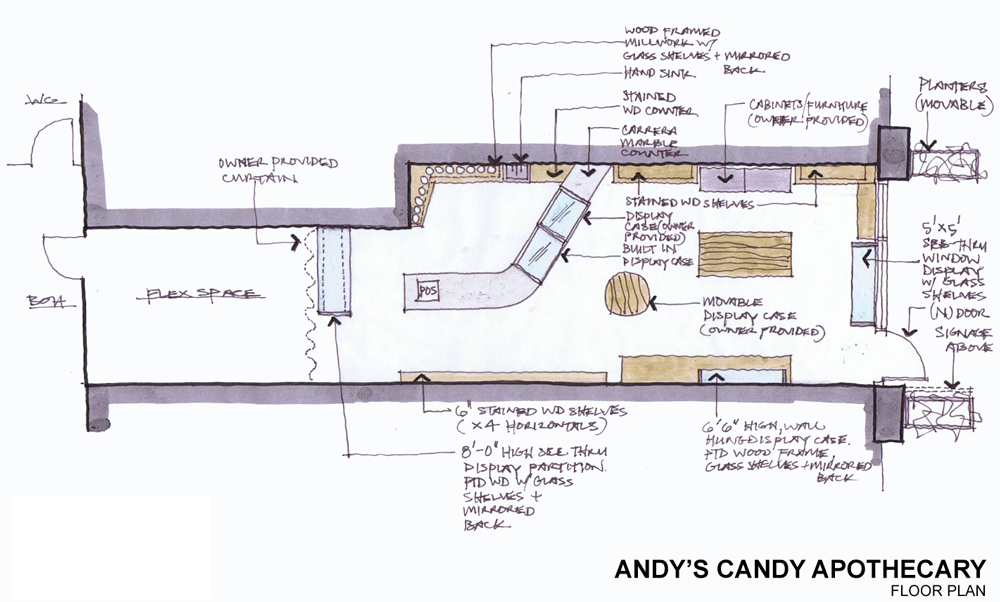 WOOD FRAMED
MILLWORK W/
GLASS SHELVES + MIRRORED
BACK
HAND SINK
STAINED
WD COUNTER
CARRERA
MARBLE
COUNTER
CABINETS/FURNITURE
(OWNER PROVIDED)
PLANTERS
(MOVABLE)
WC
OWNER PROVIDED
CURTAIN
STAINED WD SHELVES
DISPLAY
CASE (OWNER
PROVIDED)
BUILT IN
DISPLAY CASE
5'X5'
SEE THRU
WINDOW
DISPLAY
W/ GLASS
SHELVES
(N) DOOR
SIGNAGE
ABOVE
BOH
FLEX SPACE
POS
MOVABLE
DISPLAY CASE
(OWNER PROVIDED)
6" STAINED WD SHELVES
(X4 HORIZONTALS)
8'-0" HIGH SEE THRU
DISPLAY PARTITION
PTD WD W/ GLASS
SHELVES +
MIRRORED
BACK
6'6" HIGH, WALL
HUNG DISPLAY CASE.
PTD WOOD FRAME,
GLASS SHELVES + MIRRORED
BACK
ANDY'S CANDY APOTHECARY
FLOOR PLAN